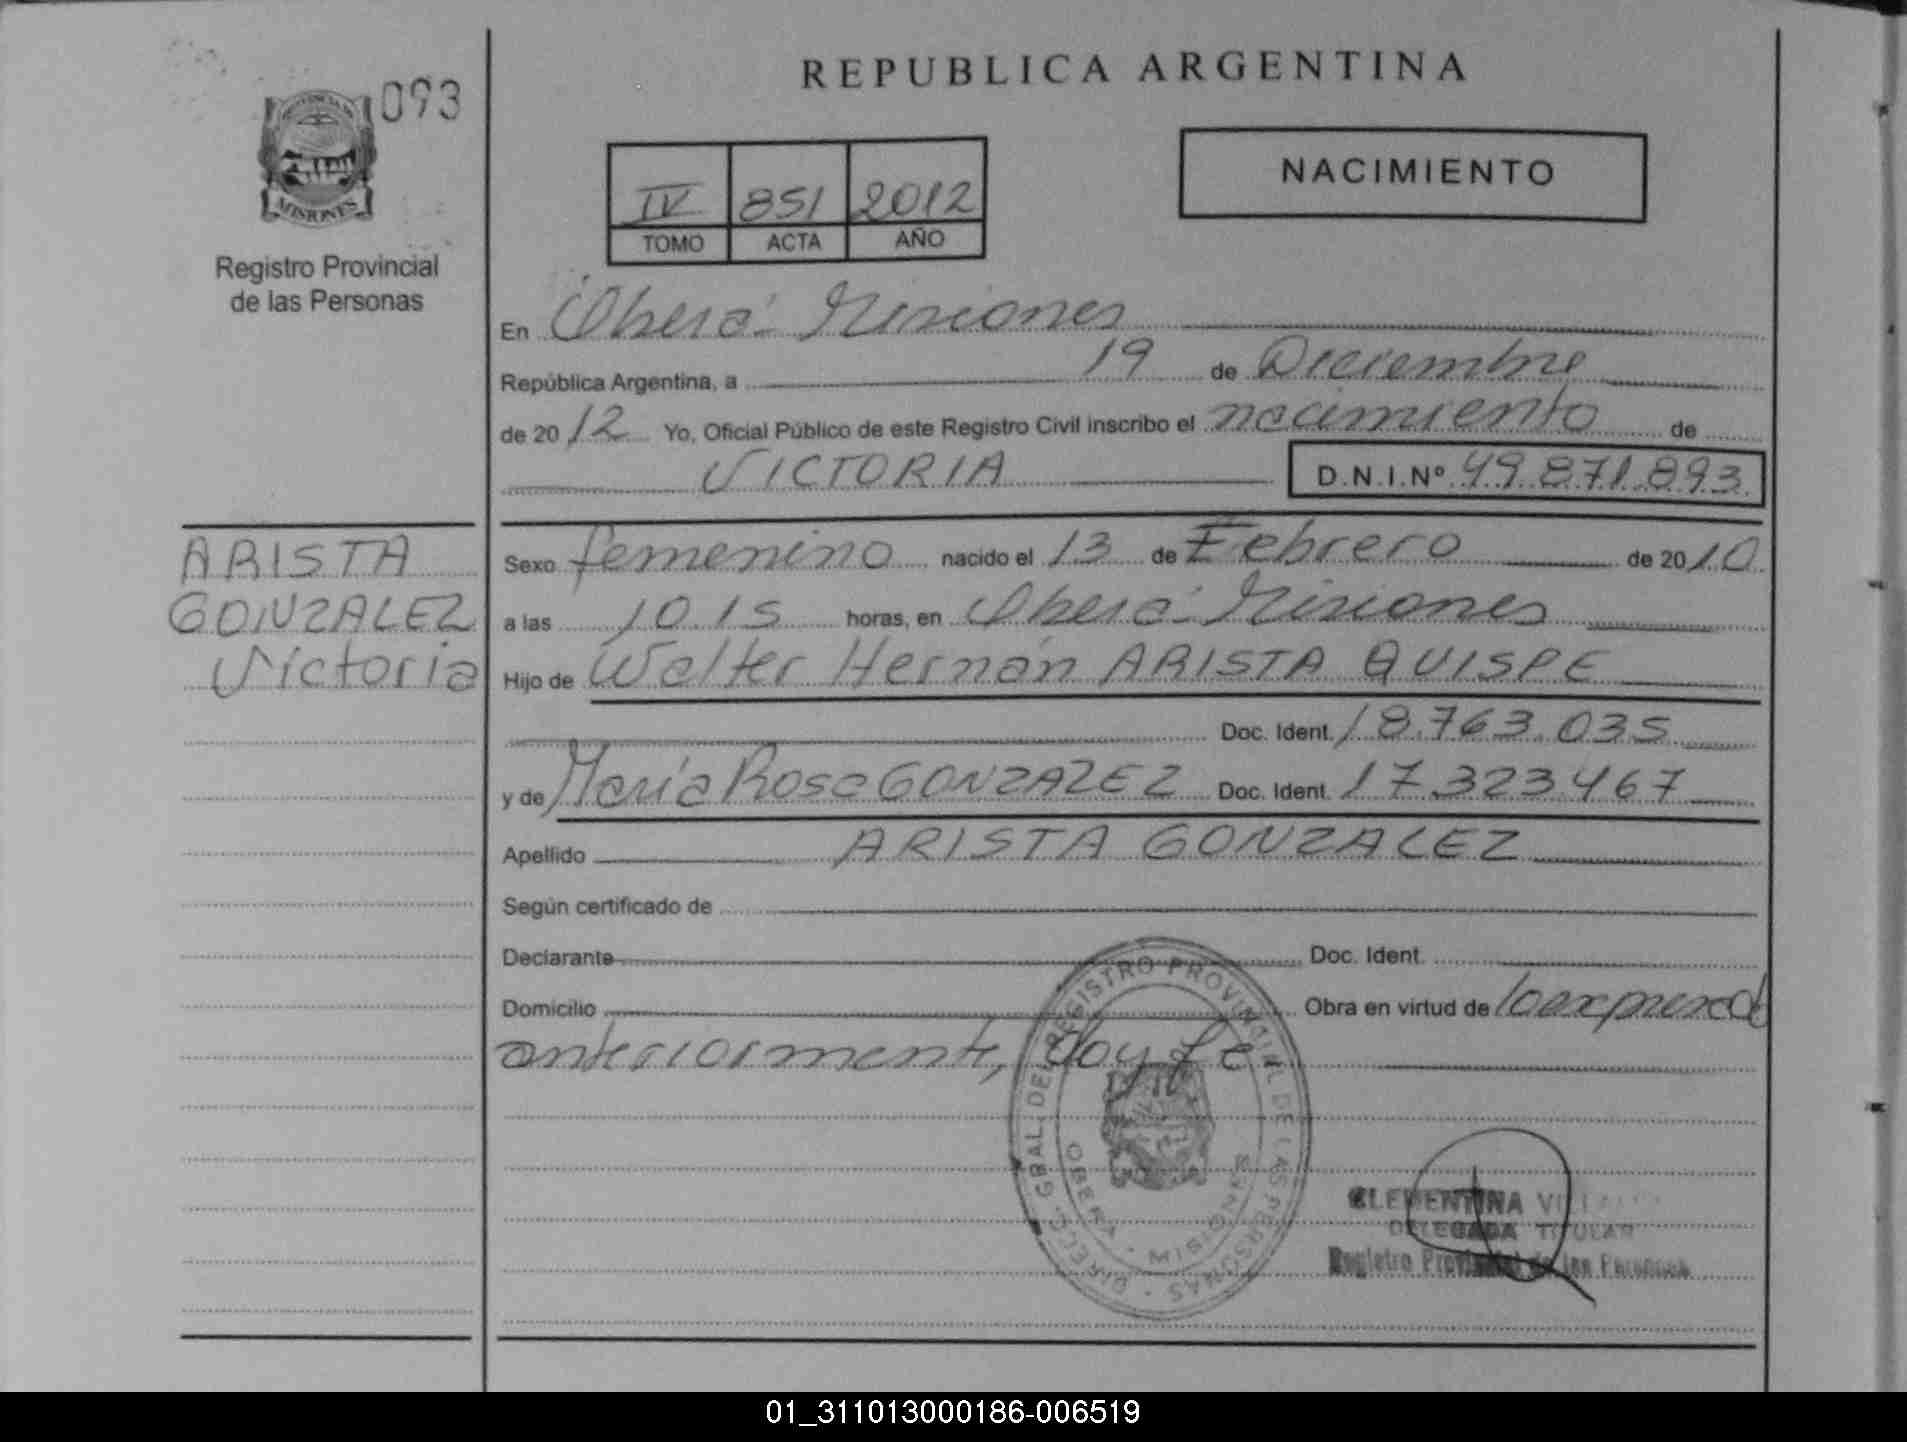 REPUBLICA ARGENTINA
093
PROVINCIA DE
MISIONES
Registro Provincial
de las Personas
IV 851 2012
TOMO ACTA AÑO
NACIMIENTO
En Oberá Misiones
República Argentina, a 19 de Diciembre
de 2012 Yo, Oficial Público de este Registro Civil inscribo el nacimiento de
VICTORIA D.N.I.Nº 49.871.893
ARISTA
GONZALEZ
Victoria
Sexo femenino nacido el 13 de Febrero de 2010
a las 10.15 horas, en Oberá Misiones
Hijo de Walter Hernán ARISTA QUISPE
Doc. Ident. 18.763.035
y de María Rosa GONZALEZ Doc. Ident. 17.323.467
Apellido ARISTA GONZALEZ
Según certificado de
Declarante Doc. Ident.
Domicilio Obra en virtud de lo expresado
anteriormente, doy fe
DIRECC. GRAL. DEL REGISTRO PROVINCIAL DE LAS PERSONAS
OBERA - MISIONES
CLEMENTINA
DELEGADA TITULAR
Registro Provincial de las Personas
01_311013000186-006519